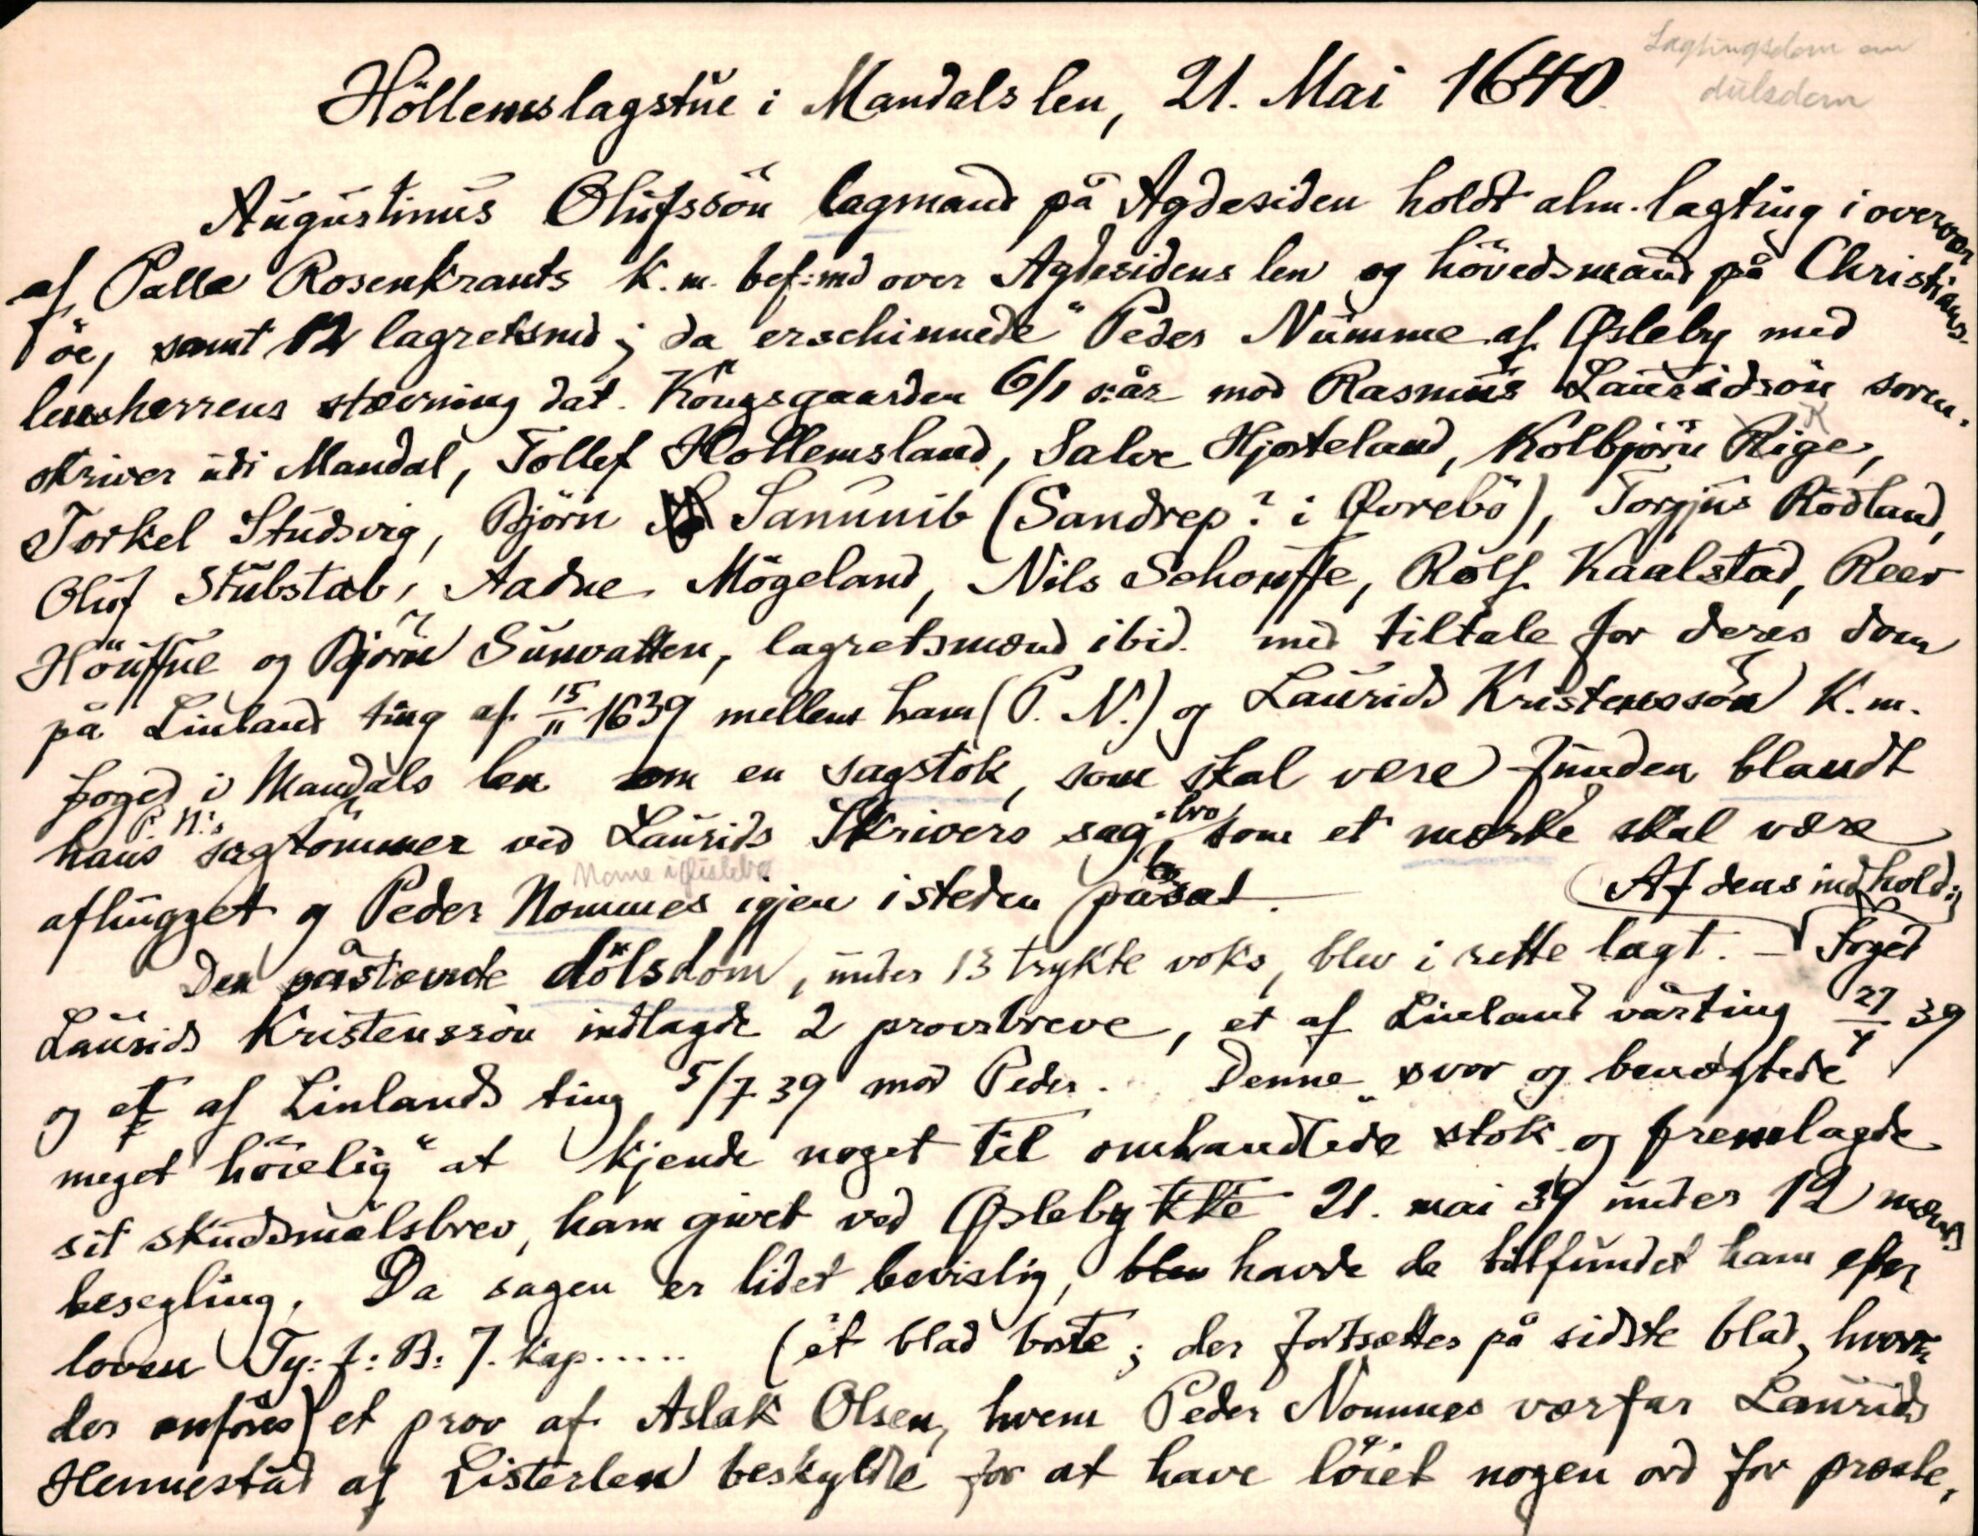 Lagtingsdom om
dulsdom
Höllemslagstue i Mandals len, 21. Mai 1640.
Augustinus Olufssön lagmand på Agdesiden holdt alm. lagting i overvær
af Palle Rosenkrants K. m. bef:md over Agdesidens len og hövedsmand på Christians-
öe, samt 12 lagretsmd; da "erschinnede" Peder Numme af Øsleby med
lensherrens stævning dat. Kongsgaarden 6/1 s:år mod Rasmus Lauridsön soren-
skriver udi Mandal, Tollef Hollemsland, Salve Hjorteland, Kolbjörn Rige,
Torkel Studsvig, Björn Sanunib (Sandrep? i Øvrebö), Torgjus Rödland,
Oluf Stubstab, Aadne Mögeland, Nils Schouffe, Rolf Kaalstad, Reer
Höuffue og Björn Sunvatten, lagretsmænd ibid. med tiltale for deres dom
på Linland ting af 15/11 1639 mellem ham (P. N.) og Laurids Kristenssön K. m.
foged i Mandals len om en sagstok, som skal være funden blandt
hans P. N.s sagtömmer ved Laurids Skrivers sag, hvor som et mærke skal være
Nome i Øisleba
afhugget og Peder Nommes igjen isteden påsat. Af dens indhold:
Den påstævnte dölsdom, under 13 trykte voks, blev i rette lagt. — Foged
Laurids Kristenssön indlagde 2 provsbreve, et af Linland vårting 27/4 39
og et af Linlands ting 5/7 39 mod Peder. Denne svor og benægtede
"meget höielig" at kjende noget til omhandlede stok og fremlagde
sit skudsmålsbrev, ham givet ved Øsleby kke 21. mai 39 under 12 mænds
besegling. Da sagen er lidet bevislig, blev havde de tilfundet ham efter
loven Ty: f: B: 7. kap..... (ét blad borte; der fortsættes på sidste blad, hvor
der anföres) et prov af Aslak Olsen, hvem Peder Nommes værfar Laurids
Hennestad af Listerlen beskyldte for at have löiet nogen ord for præste,